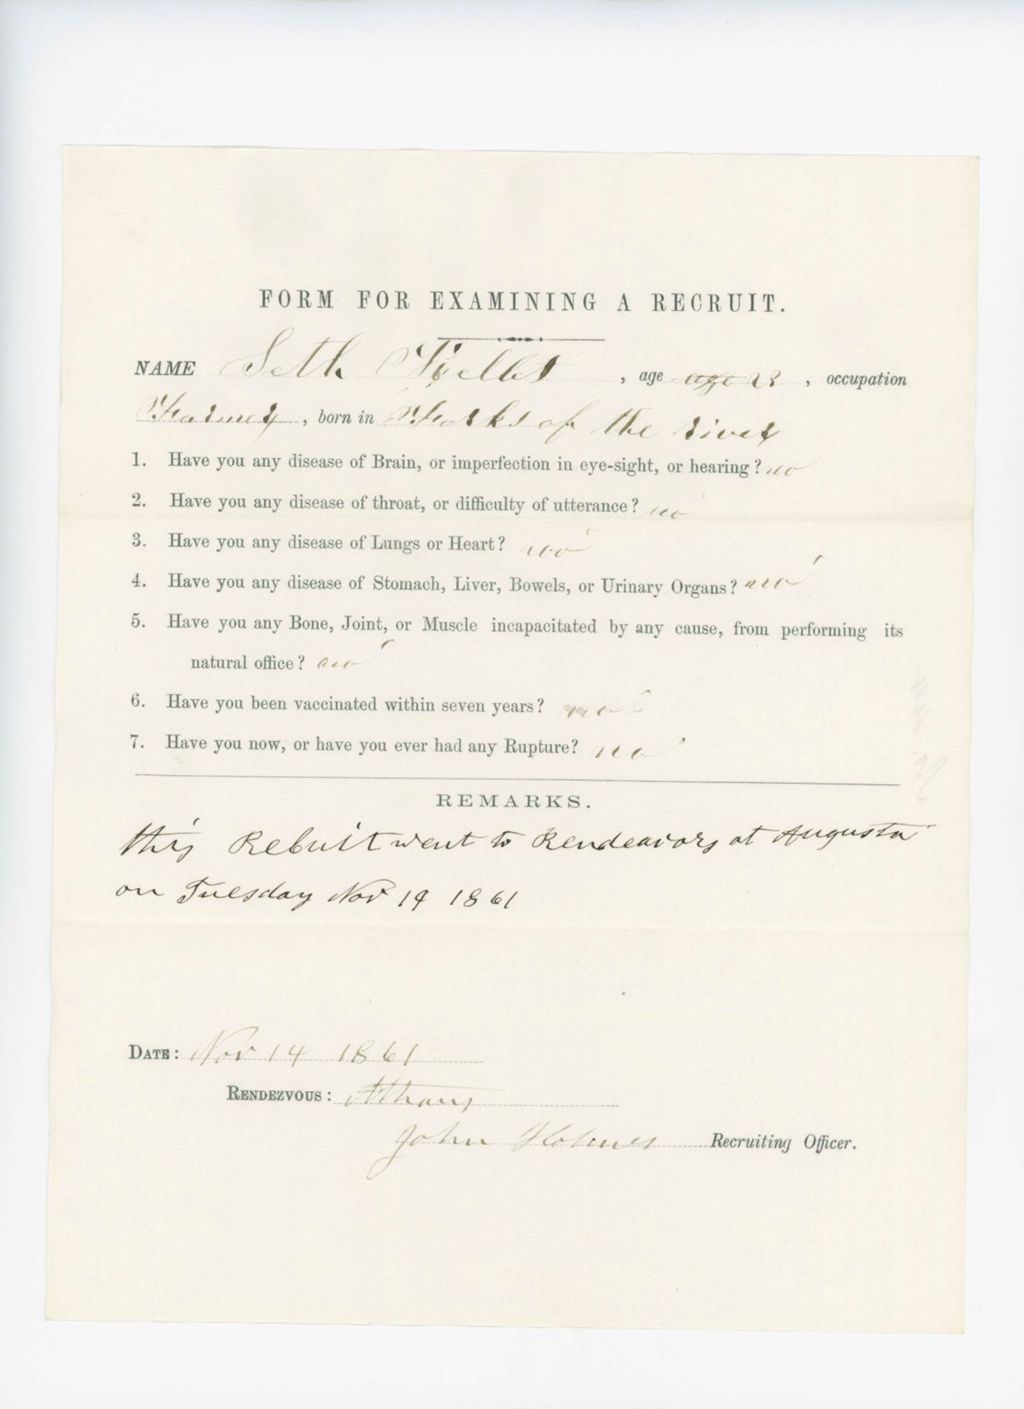 FORM FOR EXAMINING A RECRUIT.
NAME Seth , age age 23 , occupation
Farmer , born in Forks of the River
1. Have you any disease of Brain, or imperfection in eye-sight, or hearing? no
2. Have you any disease of throat, or difficulty of utterance? no
3. Have you any disease of Lungs or Heart? no
4. Have you any disease of Stomach, Liver, Bowels, or Urinary Organs? no
5. Have you any Bone, Joint, or Muscle incapacitated by any cause, from performing its
natural office? no
6. Have you been vaccinated within seven years? no
7. Have you now, or have you ever had any Rupture? no
REMARKS.
this went to at Augusta
on Tuesday Nov 19 1861
DATE: Nov 14 1861
RENDEZVOUS: Athens
John Holmes Recruiting Officer.